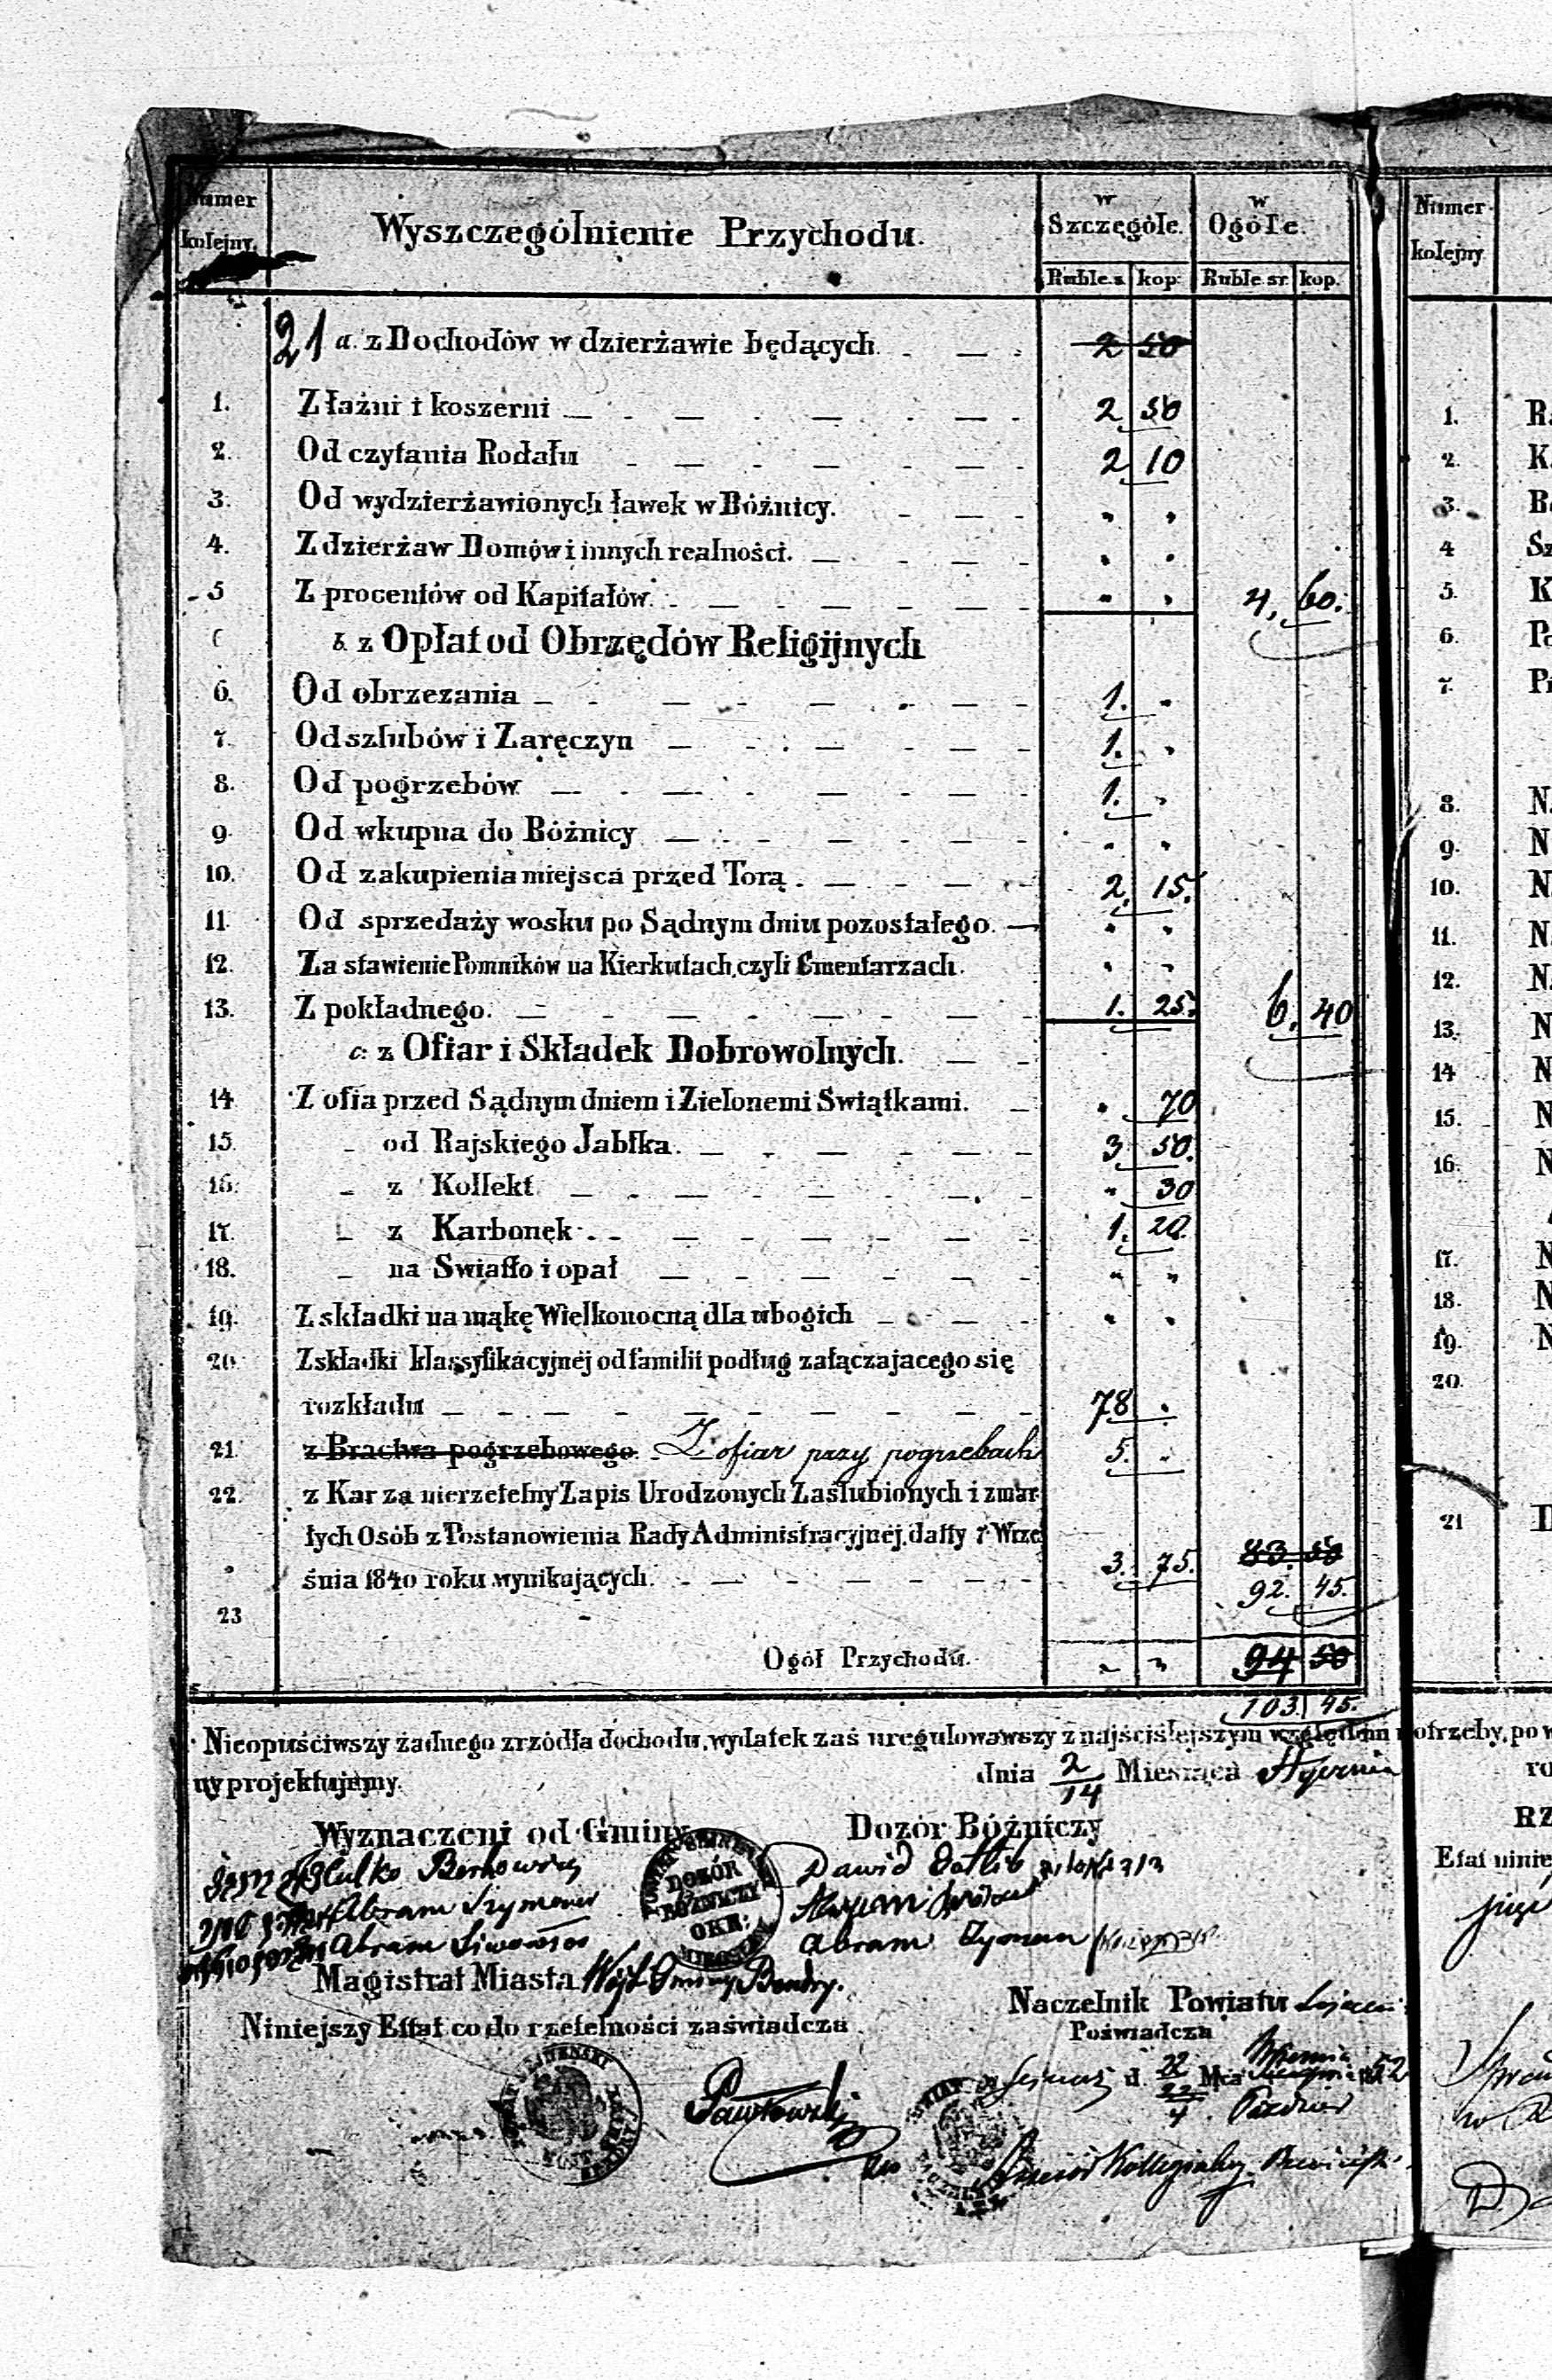 Numer kolejny. Wyszczególnienie Przychodu. w Szczególe. w Ogóle.
Ruble s. kop: Ruble sr. kop.
21 a. z Dochodów w dzierżawie będących. 2 50
1. Z łaźni i koszerni 2 50
2. Od czytania Rodału 2 10
3. Od wydzierżawionych ławek w Bóżnicy. " "
4. Z dzierżaw Domów i innych realności. " "
5 Z procentów od Kapitałów. " " 4, 60.
b. z Opłat od Obrzędów Religijnych
6. Od obrzezania 1. "
7. Od szlubów i Zaręczyn 1. "
8. Od pogrzebów 1. "
9. Od wkupna do Bóżnicy " "
10. Od zakupienia miejsca przed Torą. 2. 15.
11. Od sprzedaży wosku po Sądnym dniu pozostałego. " "
12. Za stawienie Pomników na Kierkutach, czyli Cmentarzach. " "
13. Z pokładnego. 1. 25. 6. 40
c: z Ofiar i Składek Dobrowolnych.
14 Z ofia przed Sądnym dniem i Zielonemi Swiątkami. " 70
15. " od Rajskiego Jabłka. 3 50.
16. " z Kollekt " 30
17. " z Karbonek 1. 20.
18. " na Swiatło i opał " "
19. Z składki na mąkę Wielkonocną dla ubogich " "
20. Z składki klassyfikacyjnéj od familii podług załączajacego się
rozkładu 78 "
21. z Bractwa pogrzebowego. Z ofiar przy pogrzebach 5. "
22. z Kar za nierzetelny Zapis Urodzonych Zaślubionych i zmar
łych Osób z Postanowienia Rady Administracyjnéj, datty 7 Wrze 83 50
śnia 1840 roku wynikających. 3. 75. 92. 45.
23
Ogół Przychodu. " " 94 50
103. 45.
Nieopuściwszy żadnego zrzódła dochodu, wydatek zaś uregulowawszy z najściślejszym względem potrzeby, po w
ny projektujemy. dnia 2/14 Miesiąca Stycznia
Wyznaczeni od Gminy Dozór Bóżniczy
Berkowicz Dawid
Abram Szymon
Abram Abram Szyman
DOZÓR BÓŻNICZY OKR:
Magistrat Miasta Wójt Gminy
Niniejszy Ettat co do rzetelności zaświadcza Naczelnik Powiatu
Poświadcza
d. 22 Mca 52
4 Paździer
Pawłowski
Numer kolejny
1. R
2. K
3. B
4 Sz
5. K
6. Po
7. Pi
8. N
9. N
10. N
11. N
12. N
13. N
14 N
15. N
16. N
17. N
18. N
19. N
20.
21
ro
RZ
Etat ninie